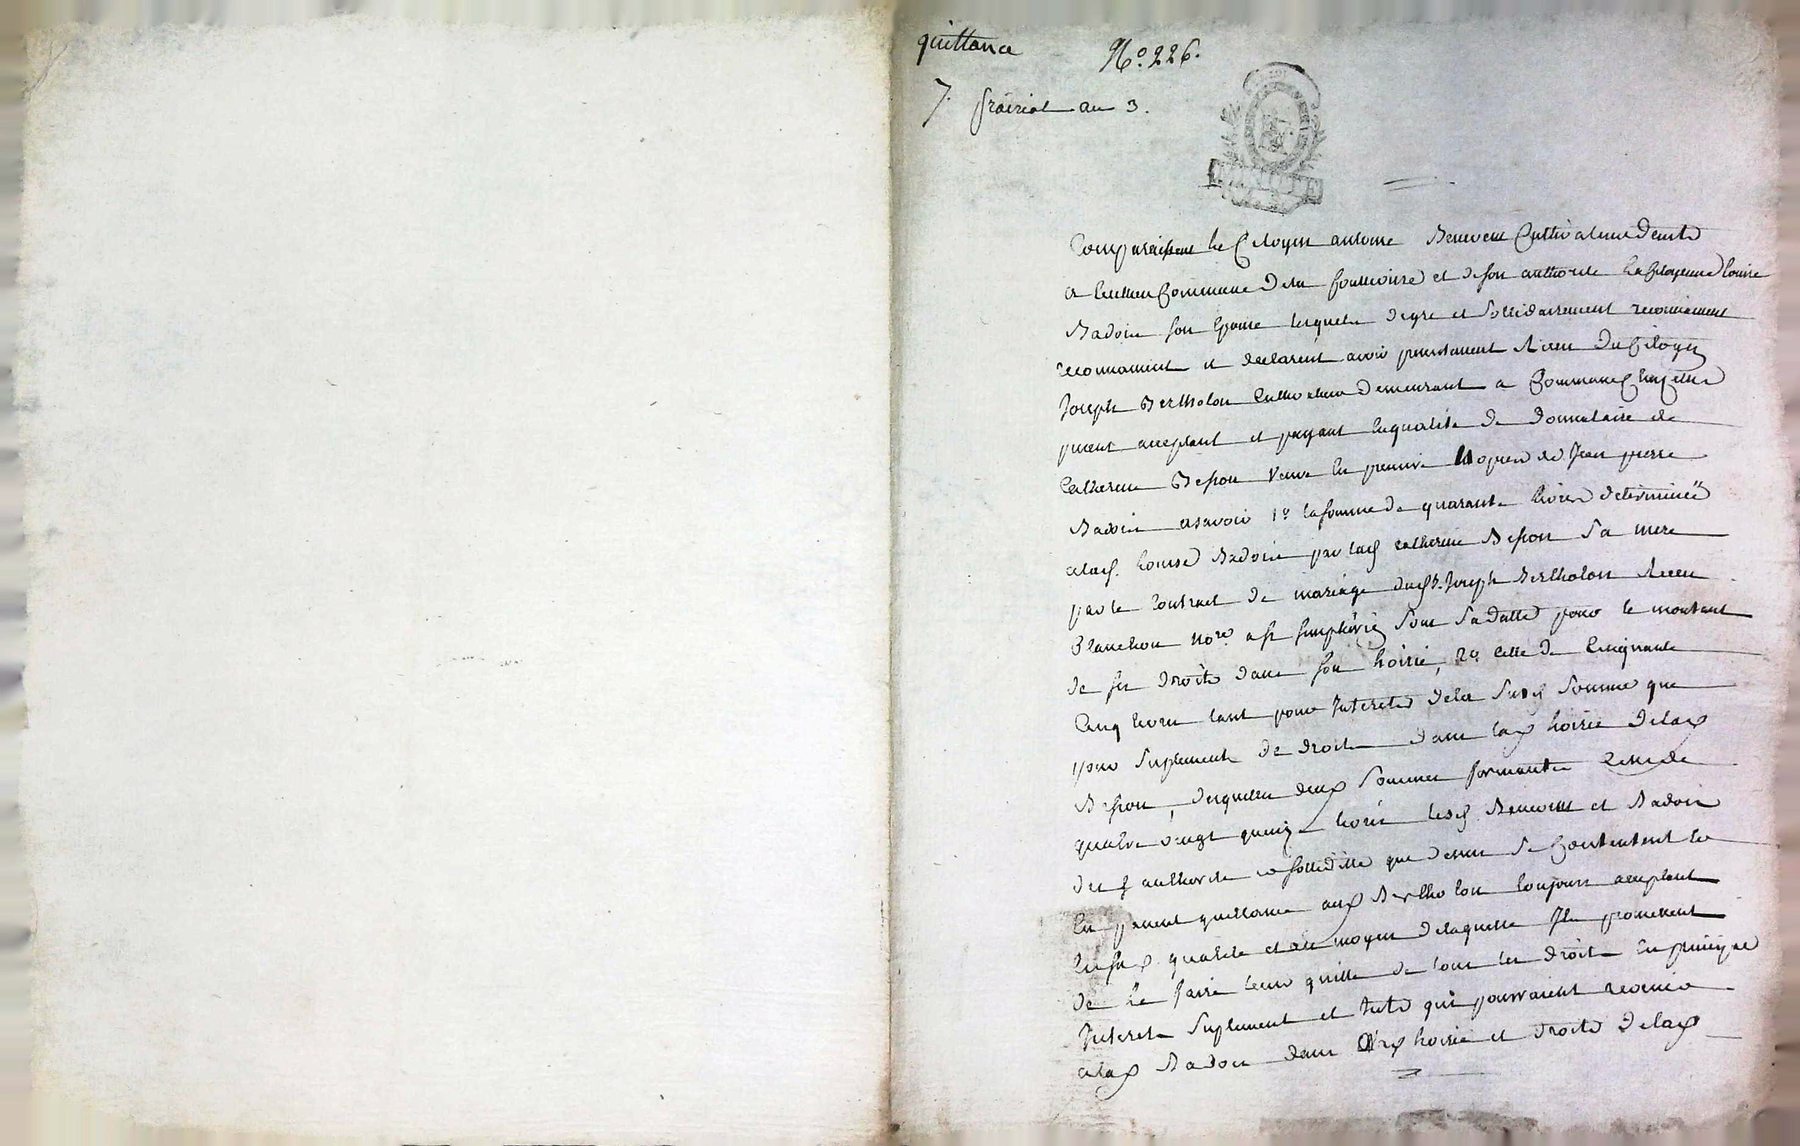 quittance N.º 226.
7. prairial an 3.
MINUTE
Comparaissent le Citoyen antoine Benevent Cultivateur demt
a Commune de la fouillouse et de son authorité la Citoyenne louise
Badoin son Epouse lesquels de gré et solidairement reconnaissent
reconnaissent et declarent avoir presentement Reçu du Citoyen
Joseph Bertholon Cultivateur demeurant a Commune
present acceptant et payant en qualité de donnataire de
Catherine Besson veuve en premiere Noces de Jean pierre
Badoin asavoir 1º la somme de quarante livres determinée
alad. louise Badoin par lad Catherine Besson Sa mere
par le Contract de mariage dud. Joseph Bertholon Recu
Blanchon Nore a St simphorien sous Sa datte pour le montant
de ses droits dans son hoirie, 2º celle de Cinquante
Cinq livres tant pour Interets de la susd somme que
pour suplement de droit dans lad hoirie de lad
Besson, desquelles deux sommes formantes celle de
quatre vingt quinze livres lesd Benevent et Badoin
de authorité et solidité que dessus se Contentent
En passent quittance aud Bertholon toujours acceptant
En sad qualité et au moyen de laquelle Ils promettent
de le faire tenir quitte de tous les droits En principal
Interet suplement et qui pourraient revenir
a lad Badoin dans hoirie et droits de lad